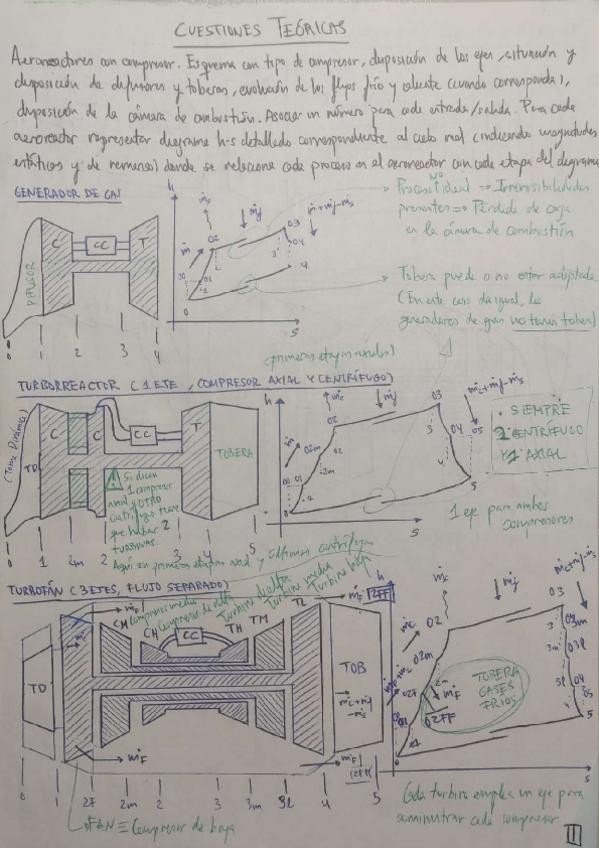 CUESTIONES TEÓRICAS
Aerorreactores con compresor. Esquema con tipo de compresor, disposición de los ejes, situación y
disposición de difusores y toberas, evolución de los flujos frío y caliente (cuando corresponda),
disposición de la cámara de combustión. Asociar un número para cada entrada/salida. Para cada
aerorreactor representar diagrama h-s detallado correspondiente al ciclo real (indicando magnitudes
estáticas y de remanso) donde se relacione cada proceso en el aerorreactor con cada etapa del diagrama
GENERADOR DE GAS
DIFUSOR
C
CC
T
0 1 2 3 4
h
ṁ
ṁ
ṁf
ṁ+ṁf-ṁs
00
01
02
03
04
0
1
2
3
4
s
Proceso no ideal ⇒ Irreversibilidades
presentes ⇒ Pérdida de carga
en la cámara de combustión
Tobera puede o no estar adaptada
(En este caso da igual, los
generadores de gas no tienen tobera)
(primeras etapas axiales)
TURBORREACTOR (1 EJE, COMPRESOR AXIAL Y CENTRÍFUGO)
(Toma Dinámica)
TD
C
C
CC
T
TOBERA
Si dicen
1 compresor
axial y OTRO
centrífugo tiene
que haber 2
TURBINAS.
Aquí son primeras etapas axial y últimas centrífugas
0 1 2m 2 3 4 5
h
ṁ
ṁc
ṁf
ṁc+ṁf-ṁs
00
01
02m
02
03
04
05
0
1
2m
3
4
5
s
SIEMPRE
2 CENTRÍFUGO
1 AXIAL
1 eje para ambos
compresores
TURBOFÁN (3 EJES, FLUJO SEPARADO)
Compresor media
Compresor de alta
Turbina de alta
Turbina media
Turbina baja
TD
ṁF
CM
CH
CC
TH
TM
TL
2FF
TOB
ṁF
ṁF
2FF
0 1 2F 2m 2 3 3m 3l 4 5
h
ṁc
ṁf
ṁc+ṁf-ṁs
02
02m
02F
2m
ṁF
02FF
03
03m
3m
03l
3l
04
05
5
s
TOBERA
GASES
FRIOS
Cada turbina emplea un eje para
suministrar cada compresor
FAN ≡ Compresor de baja